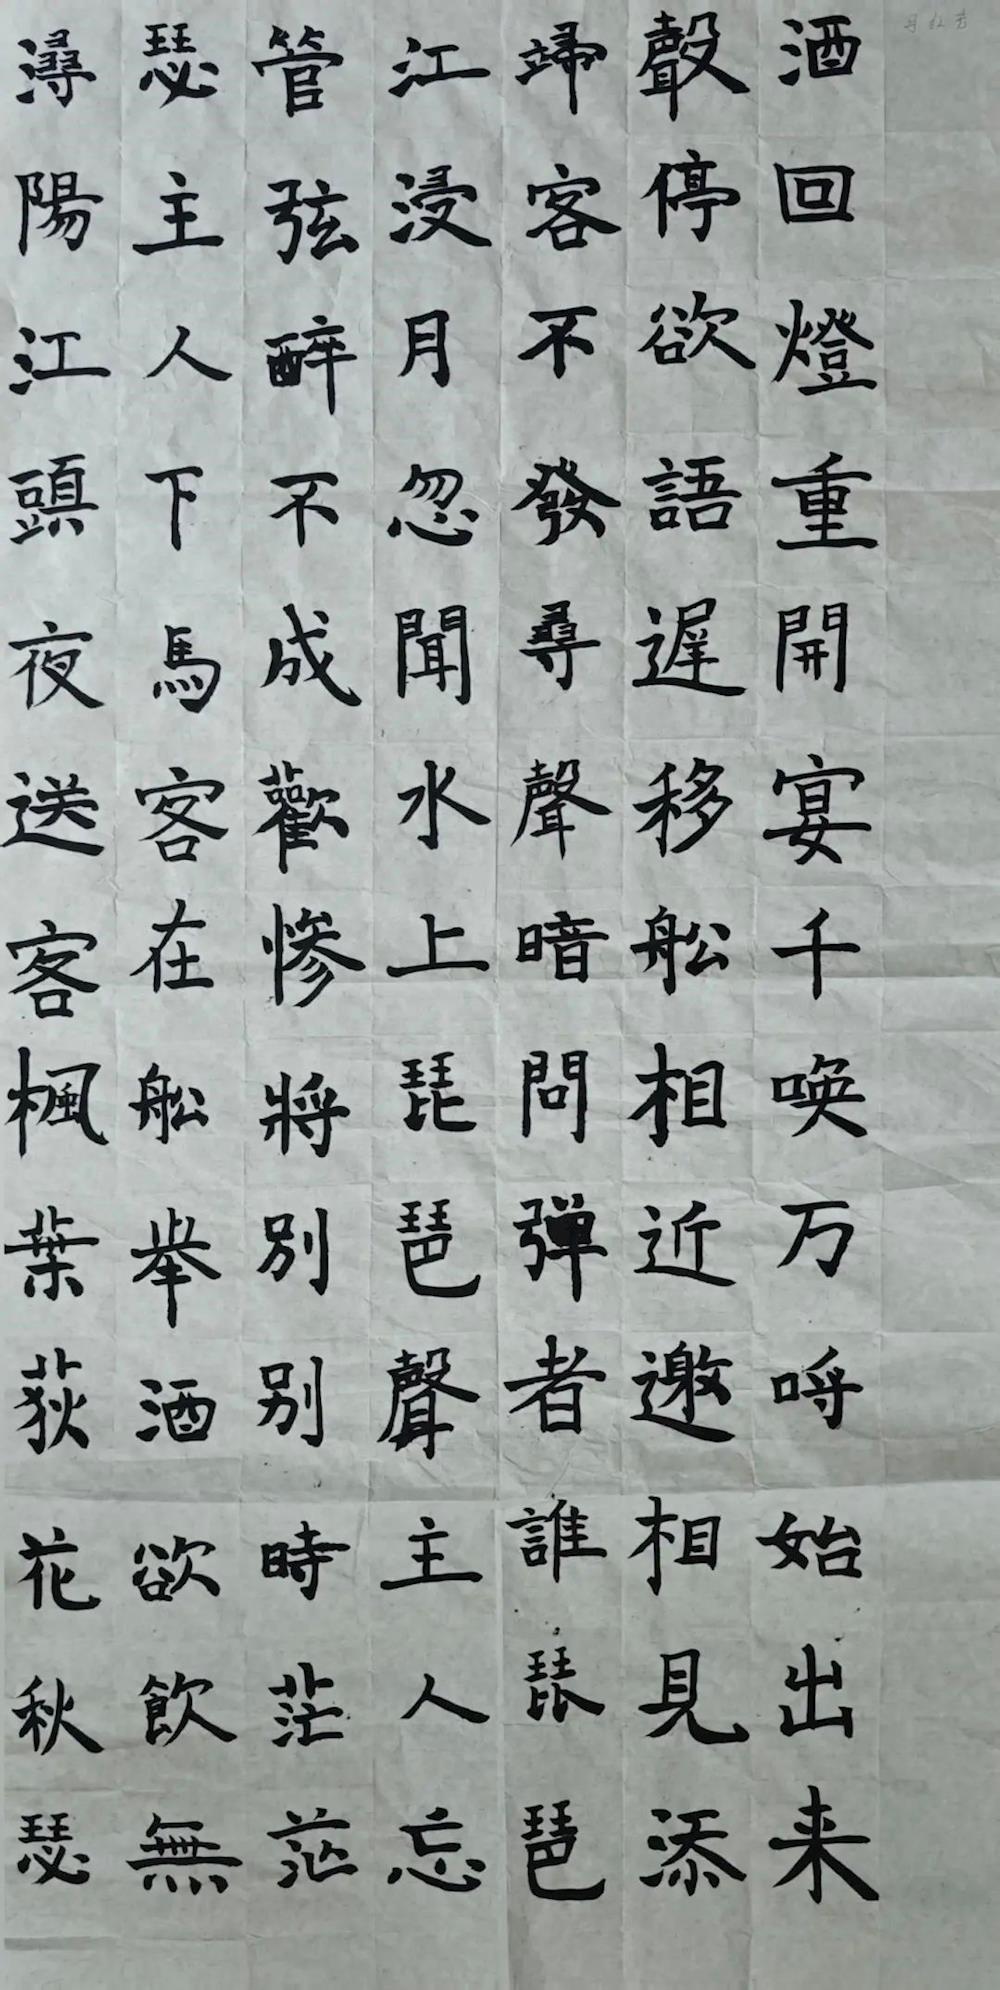 潯陽江頭夜送客楓葉荻花秋瑟
瑟主人下馬客在舩举酒欲飲無
管弦醉不成歡慘將別別時茫茫
江浸月忽聞水上琵琶聲主人忘
歸客不發尋聲暗問弹者誰琵琶
聲停欲語遲移舩相近邀相見添
酒回燈重開宴千喚万呼始出来